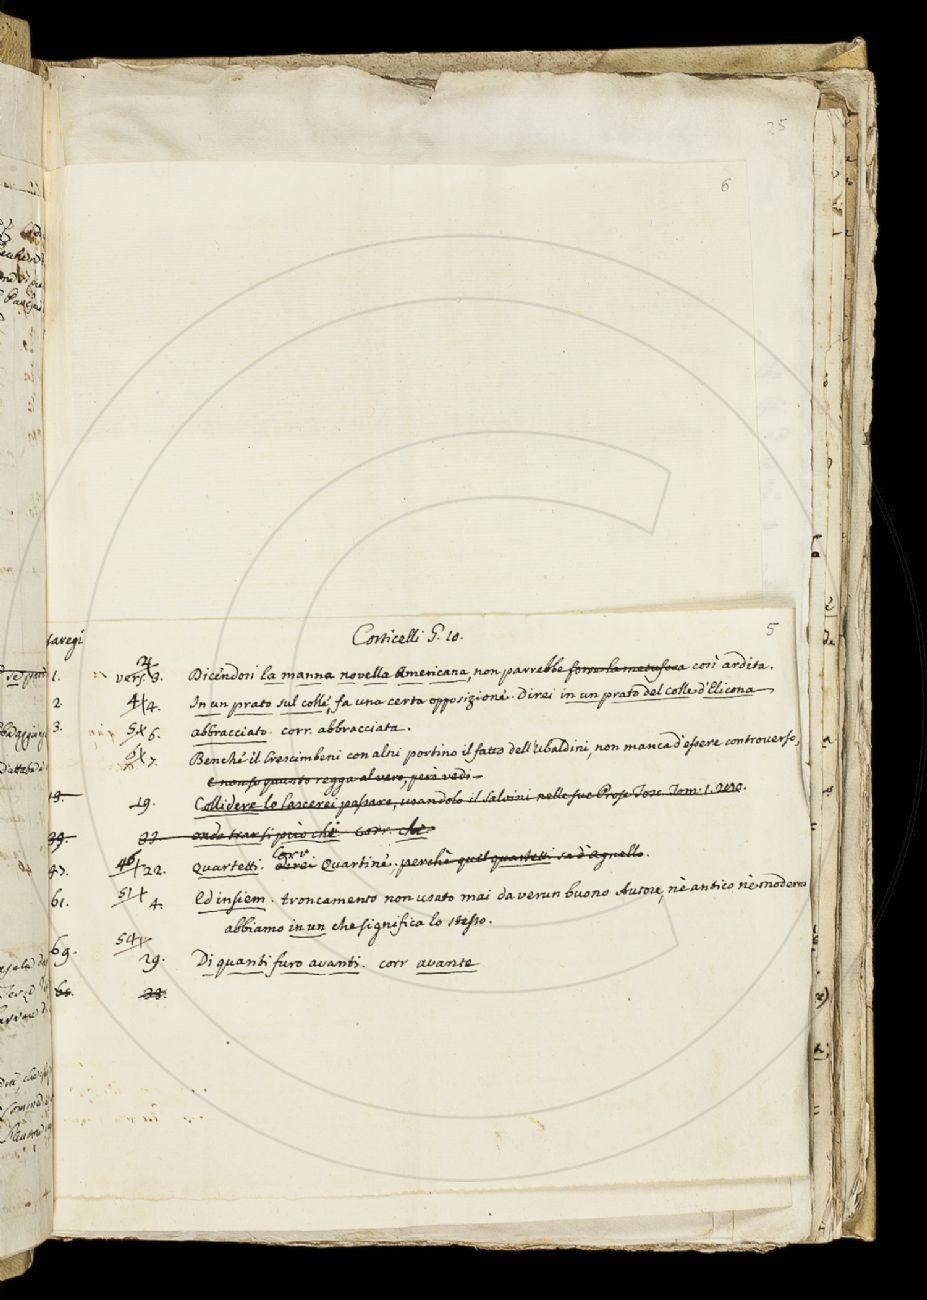 25
6
5
Corticelli G. 10.
1. vers. 3. Dicendosi la manna novella Americana, non parrebbe forse la metafora così ardita.
2 4 4. In un prato sul colle, fa una certa opposizione. Direi in un prato del colle d'Elicona
3. 5 6. abbracciato. corr. abbracciata.
6 7. Benchè il Crescimbeni con altri portino il fatto dell'Ubaldini, non manca d'essere controverso,
e non so quanto regga al vero, però vedi
13. 19. Collidere lo lascerei passare, usandolo il Salvini nelle sue Prose Tosc. Tom. 1.
39. 33. onde trarsi più che corr. che.
47. 46 22. Quartetti. Corr direi Quartine, perchè quel quartetti sa d'agnello.
61. 51 4. Ed insiem. troncamento non usato mai da verun buono Autore, nè antico nè moderno
abbiamo in un che significa lo stesso.
69. 54 29. Di quanti furo avanti. corr avante